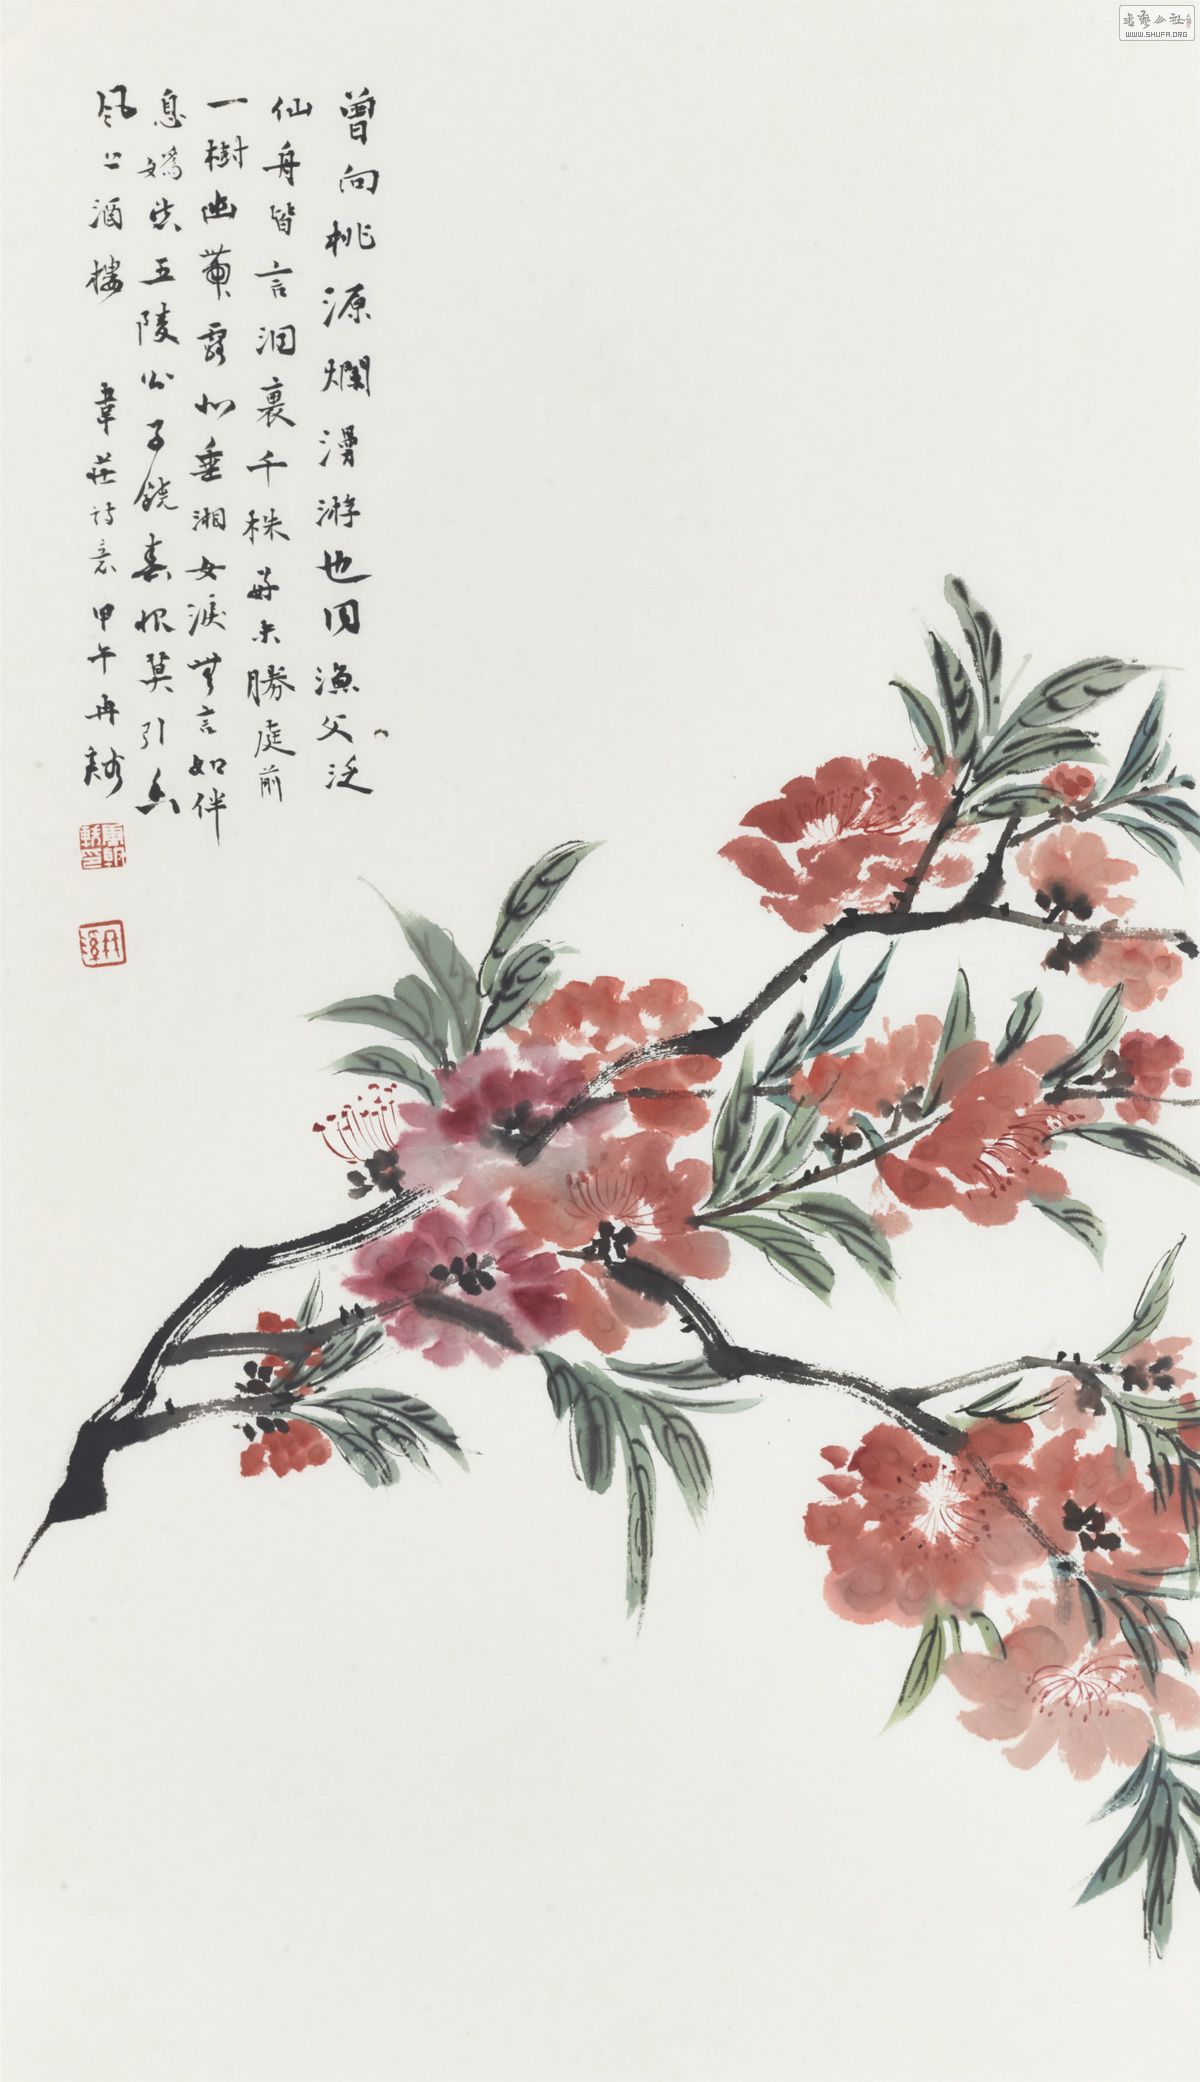 曾向桃源爛漫游也同漁父泛
仙舟皆言洞裏千株好未勝庭前
一樹幽帶露似垂湘女淚無言如伴
息媯愁五陵公子饒春恨莫引香
風上酒樓 韋莊詩意甲午冉
書藝公社
WWW.SHUFA.ORG